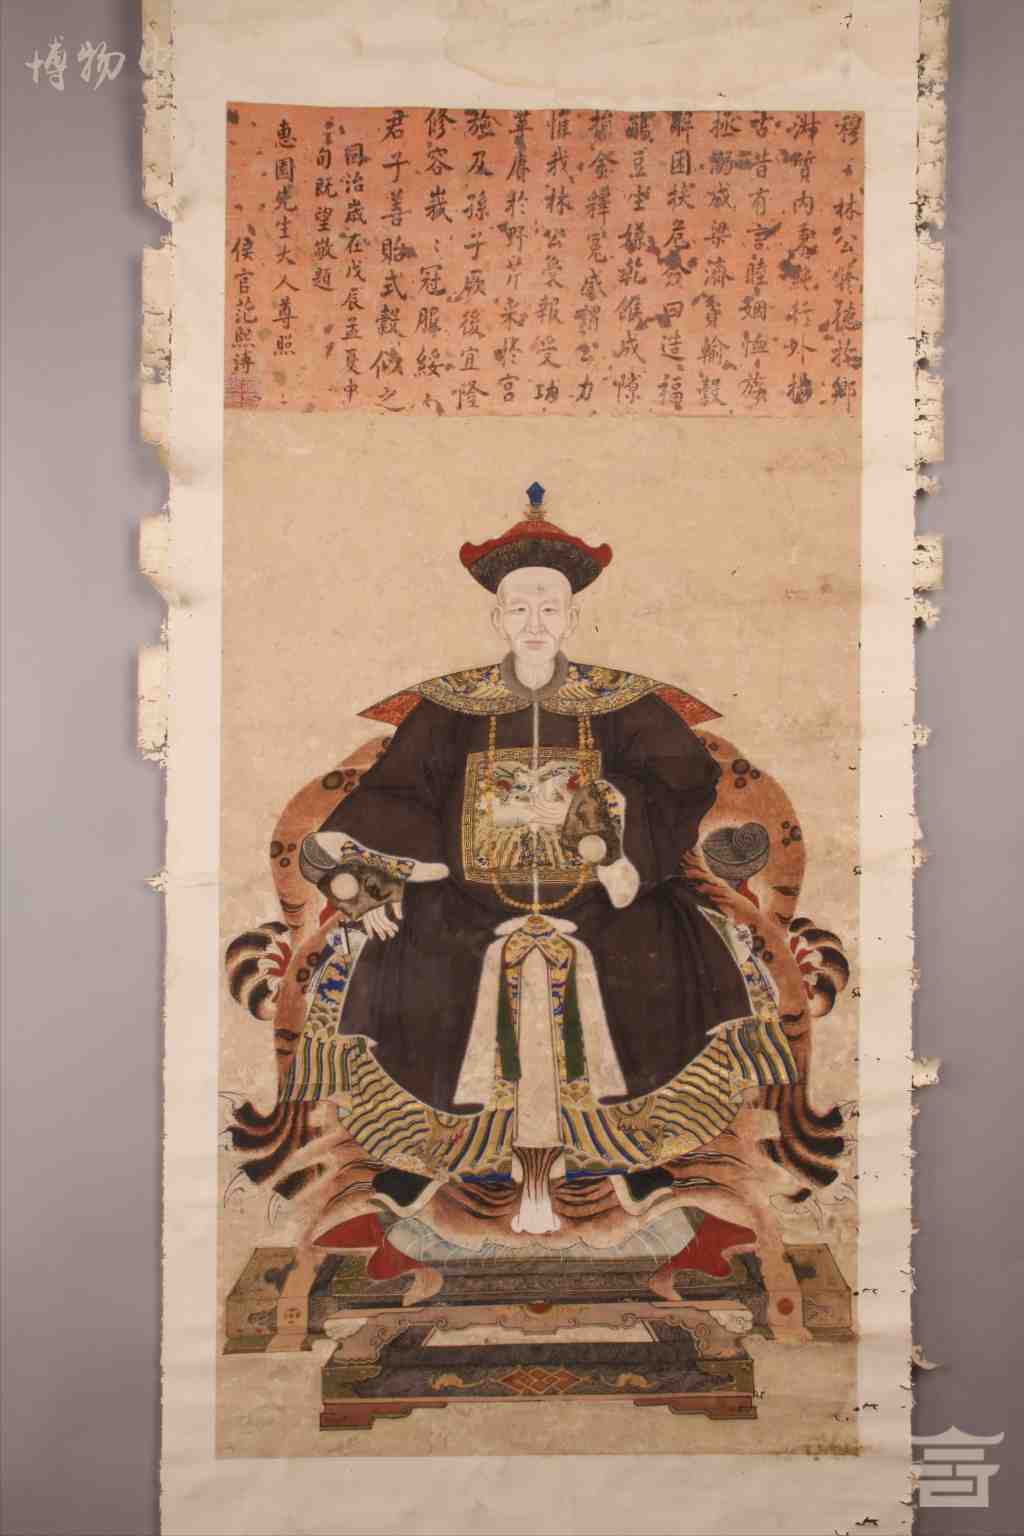 博物
穆穆林公懋德於鄉
淋質內秉純行外揚
古昔有言睦姻恤族
拯溺成梁濟貧輸穀
解困扶危僉曰造福
醵豆坐嫌乾餱成隙
捐金釋冤咸謂公力
惟我林公象報受功
苹鹿於野芹采泮宮
施及孫子厥後宜隆
修容峩峩冠服綏綏
君子善貽式穀似之
同治歲在戊辰孟夏中
旬既望敬題
惠園先生大人尊照
侯官范熙溥